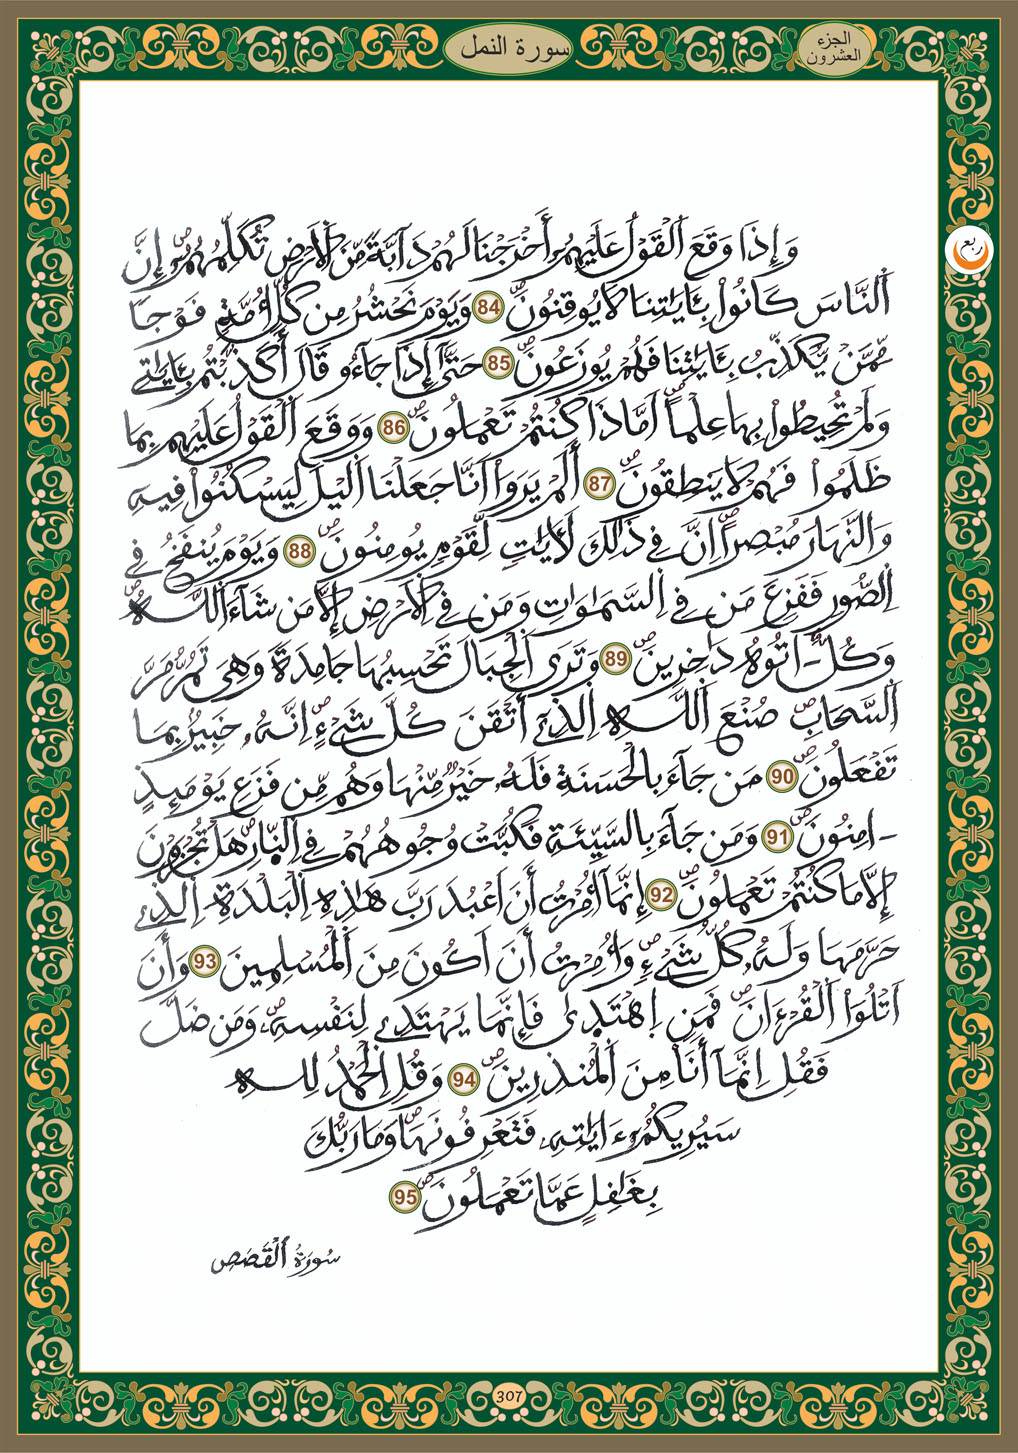 الجزء
العشرون
سورة النمل
ربع
وَإِذَا وَقَعَ اَلْقَوْلُ عَلَيْهِمُۥٓ أَخْرَجْنَا لَهُمْ دَآبَّةٗ مِّنَ اَلَارْضِ تُكَلِّمُهُمُۥٓ إِنَّ
اَلنَّاسَ كَانُواْ بِـَٔايَٰتِنَا لَا يُوقِنُونَۖ 84 وَيَوْمَ نَحْشُرُ مِن كُلِّ أُمَّةٖ فَوْجاٗ
مِّمَّنْ يُّكَذِّبُ بِـَٔايَٰتِنَا فَهُمْ يُوزَعُونَۖ 85 حَتَّىٰٓ إِذَا جَآءُو قَالَ أَكَذَّبْتُم بِـَٔايَٰتِے
وَلَمْ تُحِيطُواْ بِهَا عِلْماً اَمَّاذَا كُنتُمْ تَعْمَلُونَۖ 86 وَوَقَعَ اَلْقَوْلُ عَلَيْهِم بِمَا
ظَلَمُواْ فَهُمْ لَا يَنطِقُونَۖ 87 أَلَمْ يَرَوَاْ اَنَّا جَعَلْنَا اَليْلَ لِيَسْكُنُواْ فِيهِ
وَالنَّهَارَ مُبْصِراًۖ اِنَّ فِے ذَٰلِكَ لَأَيَٰتٖ لِّقَوْمٖ يُومِنُونَۖ 88 وَيَوْمَ يُنفَخُ فِے
اِلصُّورِ فَفَزِعَ مَن فِے اِلسَّمَٰوَٰتِ وَمَن فِے اِلَارْضِ إِلَّا مَن شَآءَ اَللَّهُۖ
وَكُلٌّ ـ اتُوهُ دَٰخِرِينَۖ 89 وَتَرَى اَلْجِبَالَ تَحْسِبُهَا جَامِدَةٗ وَهِيَ تَمُرُّ مَرَّ
اَلسَّحَابِۖ صُنْعَ اَللَّهِ اِلذِےٓ أَتْقَنَ كُلَّ شَےْءٍۖ اِنَّهُۥ خَبِيرُۢ بِمَا
تَفْعَلُونَۖ 90 مَن جَآءَ بِالْحَسَنَةِ فَلَهُۥ خَيْرٞ مِّنْهَا وَهُم مِّن فَزَعِ يَوْمَئِذٍ
ـ امِنُونَۖ 91 وَمَن جَآءَ بِالسَّيِّئَةِ فَكُبَّتْ وُجُوهُهُمْ فِے اِلنّ۪ارِۖ هَلْ تُجْزَوْنَ
إِلَّا مَا كُنتُمْ تَعْمَلُونَۖ 92 إِنَّمَآ أُمِرْتُ أَنَ اَعْبُدَ رَبَّ هَٰذِهِ اِلْبَلْدَةِ اِلذِے
حَرَّمَهَا وَلَهُۥ كُلُّ شَےْءٖۖ وَأُمِرْتُ أَنَ اَكُونَ مِنَ اَلْمُسْلِمِينَ 93 وَأَنَ
اَتْلُوَاْ اَلْقُرْءَانَۖ فَمَنِ اِهْتَد۪ىٰ فَإِنَّمَا يَهْتَدِے لِنَفْسِهِۦۖ وَمَن ضَلَّ
فَقُلِ اِنَّمَآ أَنَا مِنَ اَلْمُنذِرِينَۖ 94 وَقُلِ اِلْحَمْدُ لِلهِ
سَيُرِيكُمُۥٓ ءَايَٰتِهِۦ فَتَعْرِفُونَهَاۖ وَمَا رَبُّكَ
بِغَٰفِلٍ عَمَّا تَعْمَلُونَۖ 95
سُورَةُ اُلْقَصَصِ
307